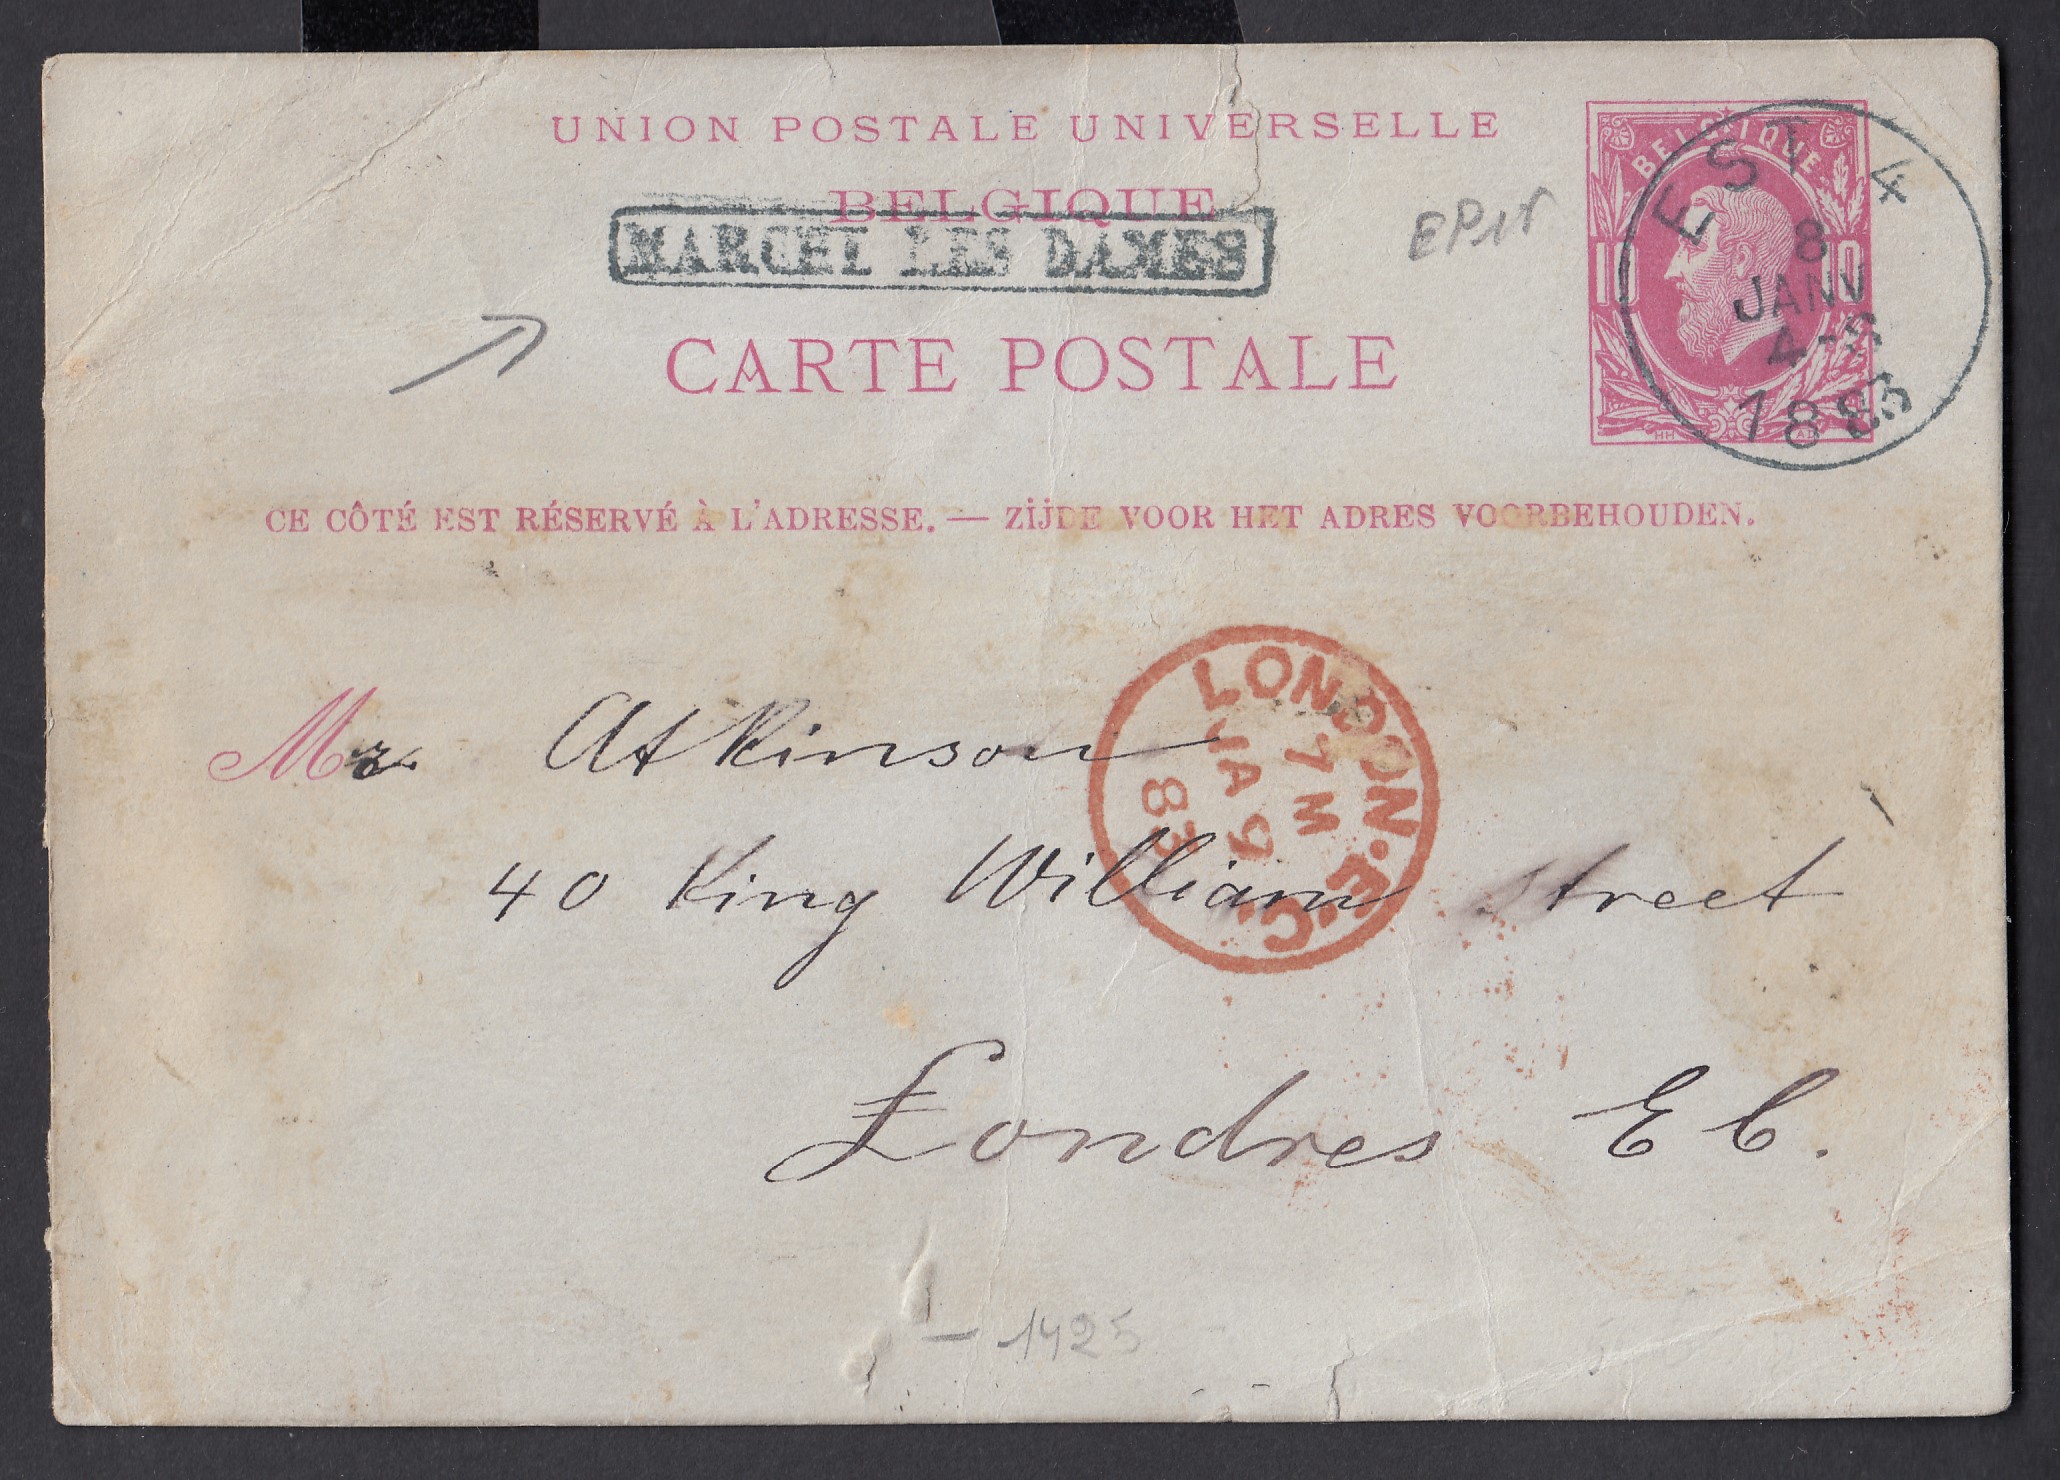 UNION POSTALE UNIVERSELLE
BELGIQUE
MARCHE LES DAMES
CARTE POSTALE
EP15
BELGIQUE
10 10
EST 4
8
JANV
4-S
1883
CE CÔTÉ EST RÉSERVÉ À L'ADRESSE. — ZIJDE VOOR HET ADRES VOORBEHOUDEN.
Mr. Atkinson
40 King William Street
Londres EC.
LONDON.E.C.
7 M
JA 9
83
- 1425